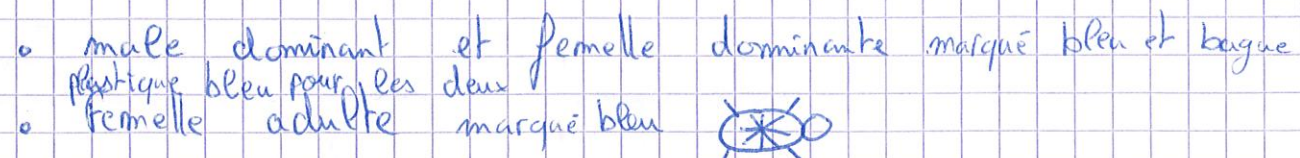 • male dominant et femelle dominante marqué bleu et bague
plastique bleu pour les deux
• femelle adulte marqué bleu